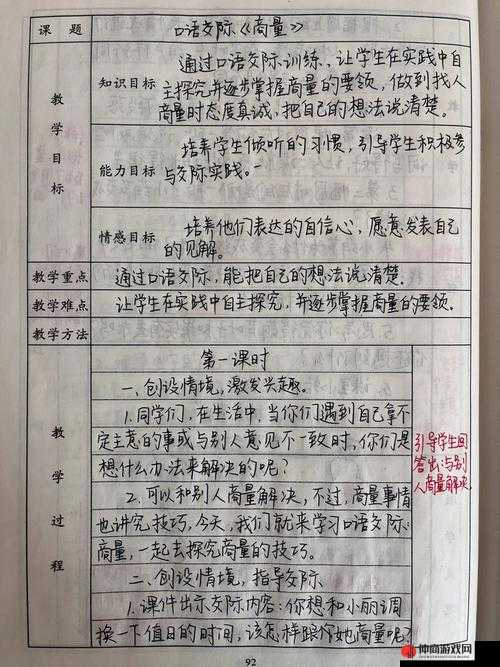 课题 口语交际《商量》
教学目标
知识目标
通过口语交际训练，让学生在实践中自
主探究并逐步掌握商量的要领，做到找人
商量时态度真诚，把自己的想法说清楚。
能力目标
培养学生倾听的习惯，引导学生积极参
与交际实践。
情感目标
培养他们表达的自信心，愿意发表自己
的见解。
教学重点 通过口语交际，能把自己的想法说清楚。
教学难点 让学生在实践中自主探究，并逐步掌握商量的要领。
教学方法
教学过程
第一课时
一、创设情境，激发兴趣。
1.同学们，在生活中，当你们遇到自己拿不
定主意的事或与别人意见不一致时，你们是
想什么办法来解决的呢？
2.可以和别人商量解决，不过，商量事情
也讲究技巧，今天，我们就来学习口语交际：
商量，一起去探究商量的技巧。
二、创设情境，指导交际
1.课件出示交际内容：你想和小丽调
换一下值日的时间，该怎样跟她商量呢？
引导学生回
答出：与别
人商量解决
92
仲商游戏网